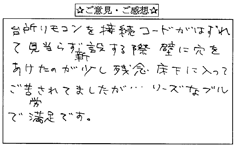 ☆ご意見・ご感想☆
台所リモコンを接続コードがはずれ
て見当らず新設する際 壁に穴を
あけたのが少し残念 床下に入って
ご苦労されてましたが… リーズなブル
で満足です。